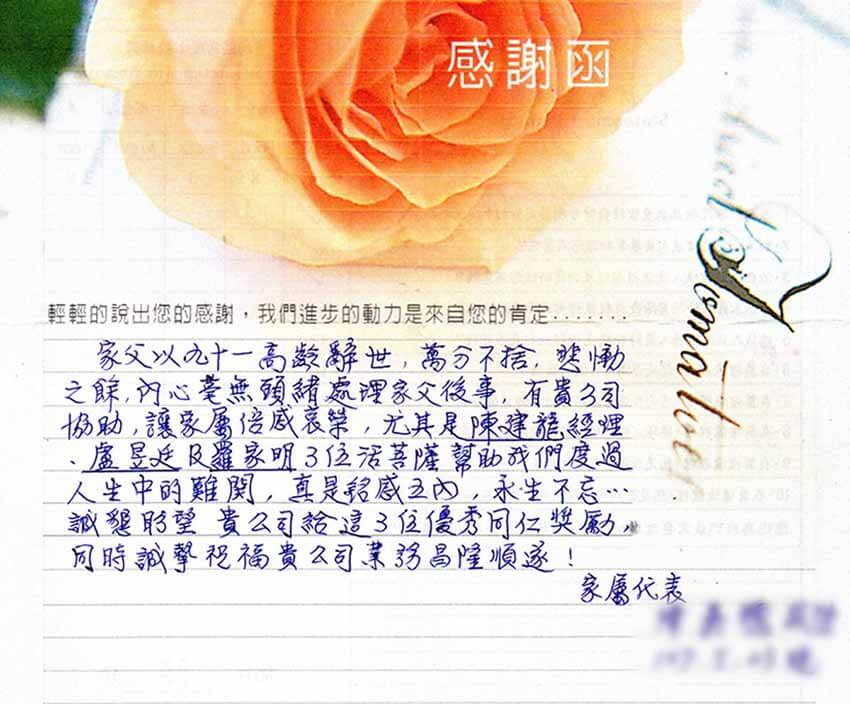 感謝函
輕輕的說出您的感謝，我們進步的動力是來自您的肯定.......
家父以九十一高齡辭世，萬分不捨，悲慟
之餘，內心毫無頭緒處理家父後事，有貴公司
協助，讓家屬倍感哀榮，尤其是陳建龍經理
、盧昱廷及羅家明3位活菩薩幫助我們度過
人生中的難關，真是銘感五內 永生不忘…
誠懇盼望 貴公司給這3位優秀同仁獎勵，
同時誠摯祝福貴公司業務昌隆順遂！
家屬代表